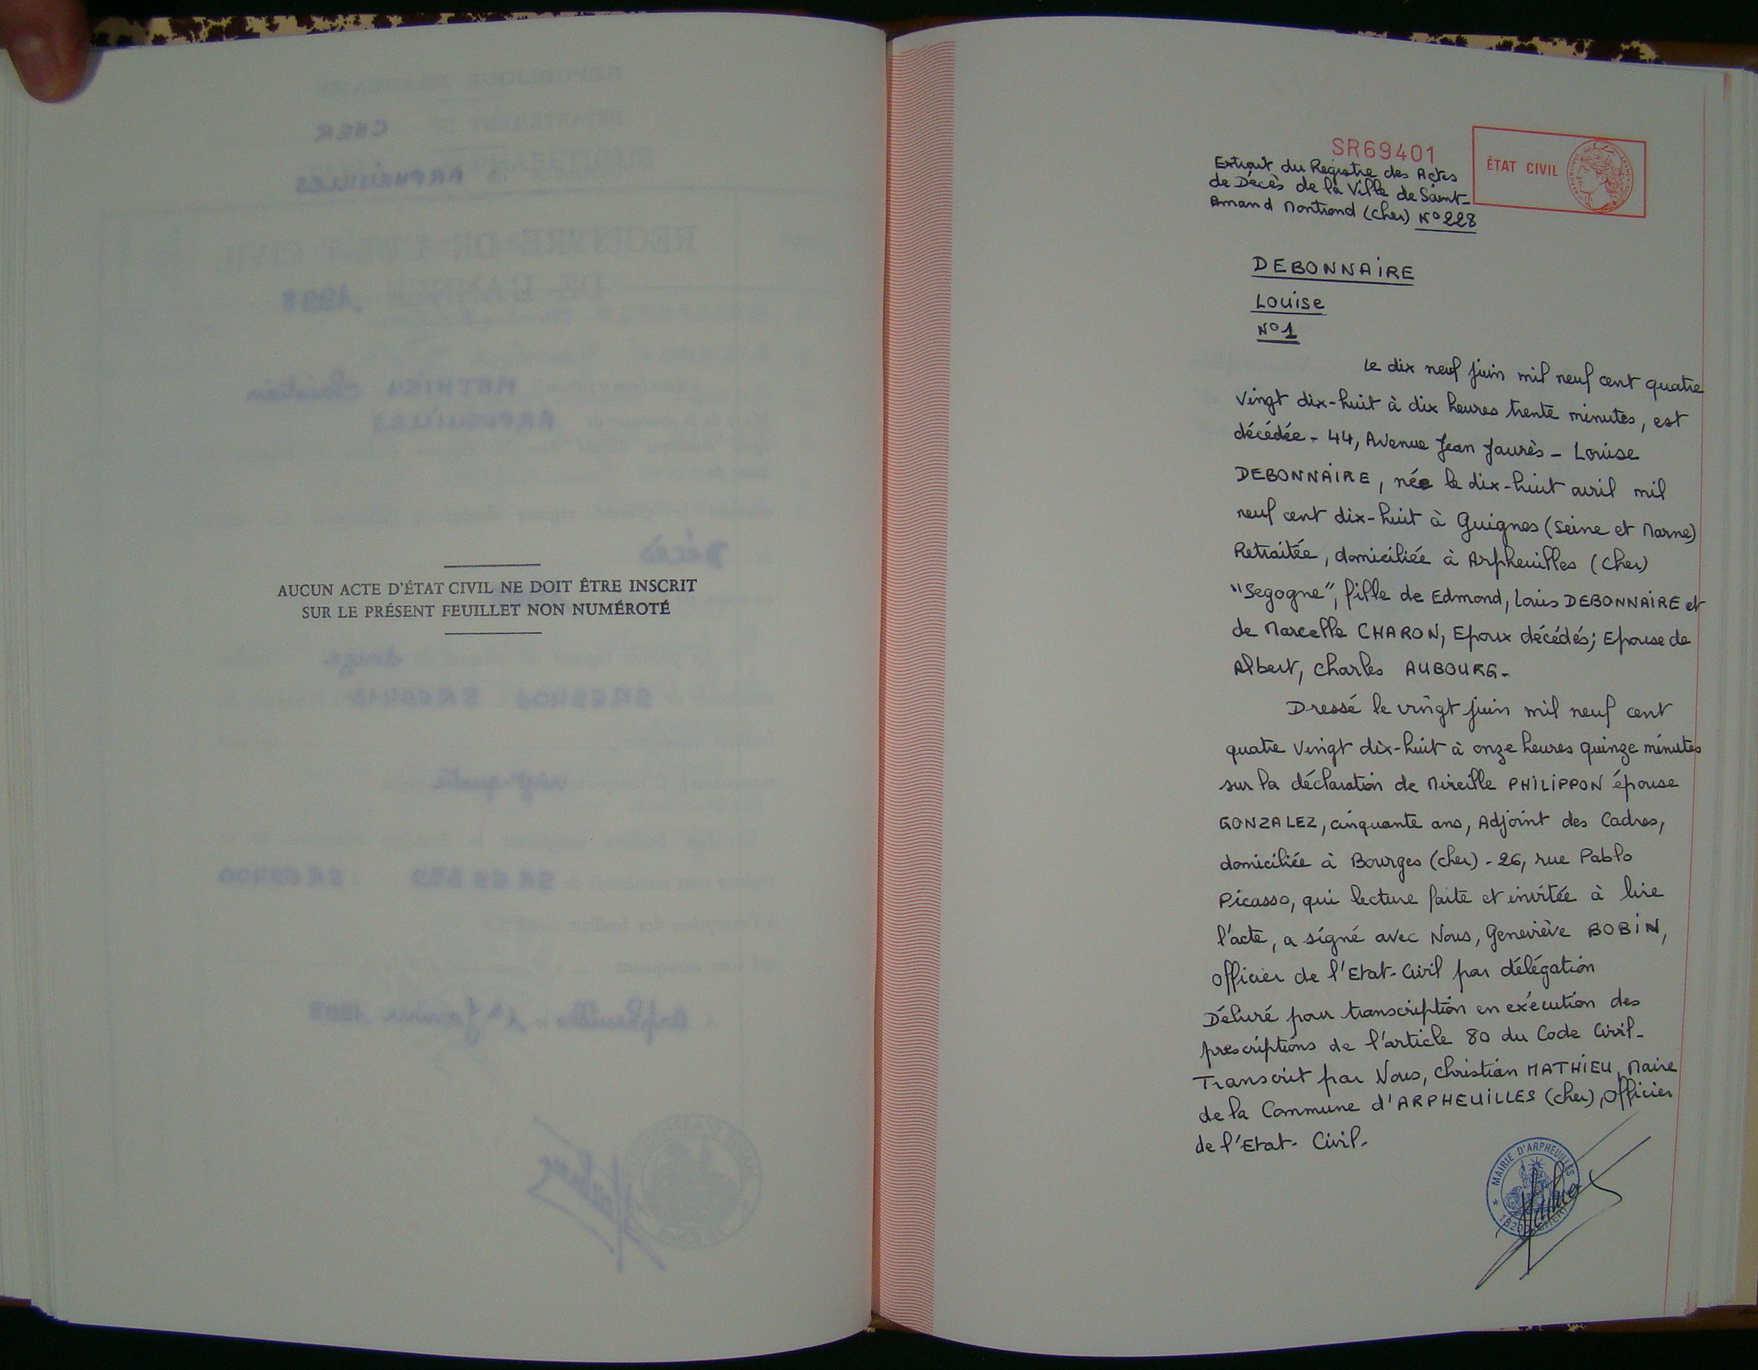 AUCUN ACTE D'ÉTAT CIVIL NE DOIT ÊTRE INSCRIT
SUR LE PRÉSENT FEUILLET NON NUMÉROTÉ
SR69401
ÉTAT CIVIL
Extrait du Registre des Actes
de Décès de la Ville de Saint-
Amand Montrond (Cher) N° 228
DEBONNAIRE
Louise
N° 1
Le dix neuf juin mil neuf cent quatre
vingt dix-huit à dix heures trente minutes, est
décédée - 44, Avenue Jean Jaurès - Louise
DEBONNAIRE, née le dix-huit avril mil
neuf cent dix-huit à Guignes (Seine et Marne)
Retraitée, domiciliée à Arpheuilles (Cher)
"Segogne", fille de Edmond, Louis DEBONNAIRE et
de Marcelle CHARON, Epoux décédés; Epouse de
Albert, Charles AUBOURG.
Dressé le vingt juin mil neuf cent
quatre vingt dix-huit à onze heures quinze minutes
sur la déclaration de Mireille PHILIPPON épouse
GONZALEZ, cinquante ans, Adjoint des Cadres,
domiciliée à Bourges (Cher) - 26, rue Pablo
Picasso, qui lecture faite et invitée à lire
l'acte, a signé avec Nous, Geneviève BOBIN,
Officier de l'Etat-Civil par délégation
Délivré pour transcription en exécution des
prescriptions de l'article 80 du Code Civil-
Transcrit par Nous, Christian MATHIEU, Maire
de la Commune d'ARPHEUILLES (Cher), Officier
de l'Etat-Civil-
MAIRIE D'ARPHEUILLES